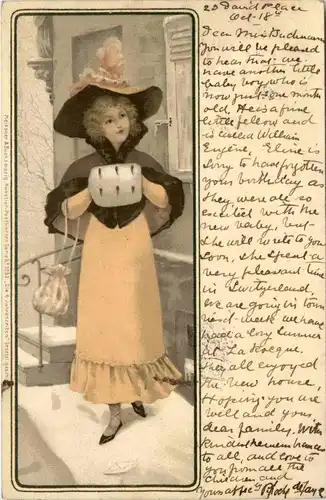 23 David Place
Oct. 18th
Dear Miss
You will be pleased
to hear that we
have another little
baby boy who is
now just one month
old. He is a fine
little fellow and
is called William
Eugene, Elsie is
sorry to have forgotten
your birthday as
they were all so
excited with the
new baby, but
she will write to you
soon, she spent a
very pleasant time
in Switzerland,
We are going in town
next week we have
had a long summer
at La Rocque.
They all enjoyed
the new house,
Hoping you are
well and your
dear family. With
kindest remembrances
to all, and love to
you from all the
children and
yours